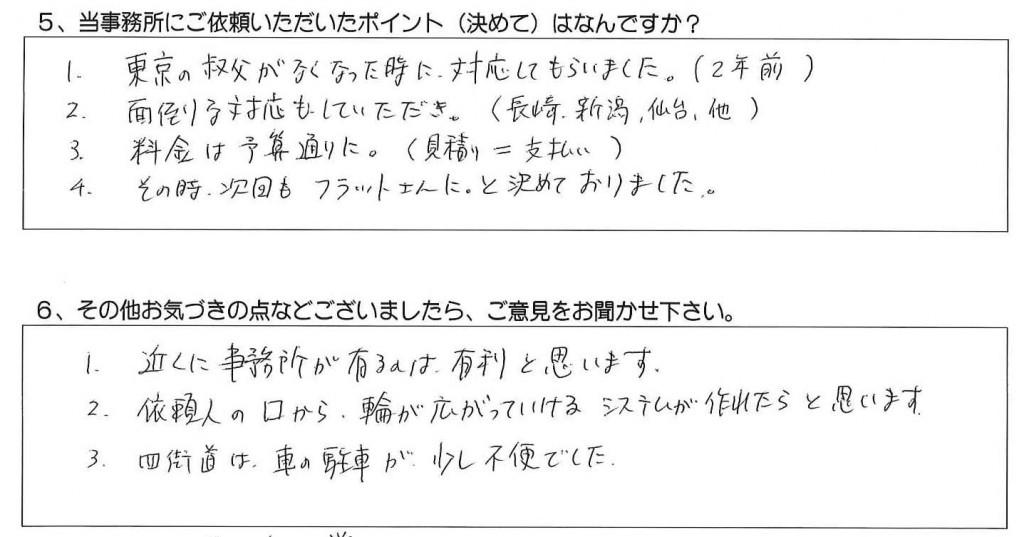 5、当事務所にご依頼いただいたポイント（決めて）はなんですか？
1. 東京の叔父がなくなった時に、対応してもらいました。（2年前）
2. 面倒な対応もしていただき。（長崎、新潟、仙台、他）
3. 料金は予算通りに。（見積り＝支払い）
4. その時、次回もフラットさんに。と決めておりました。
6、その他お気づきの点などございましたら、ご意見をお聞かせ下さい。
1. 近くに事務所が有るのは、有利と思います。
2. 依頼人の口から、輪が広がっていける システムが作れたらと思います
3. 四街道は、車の駐車が、少し不便でした。